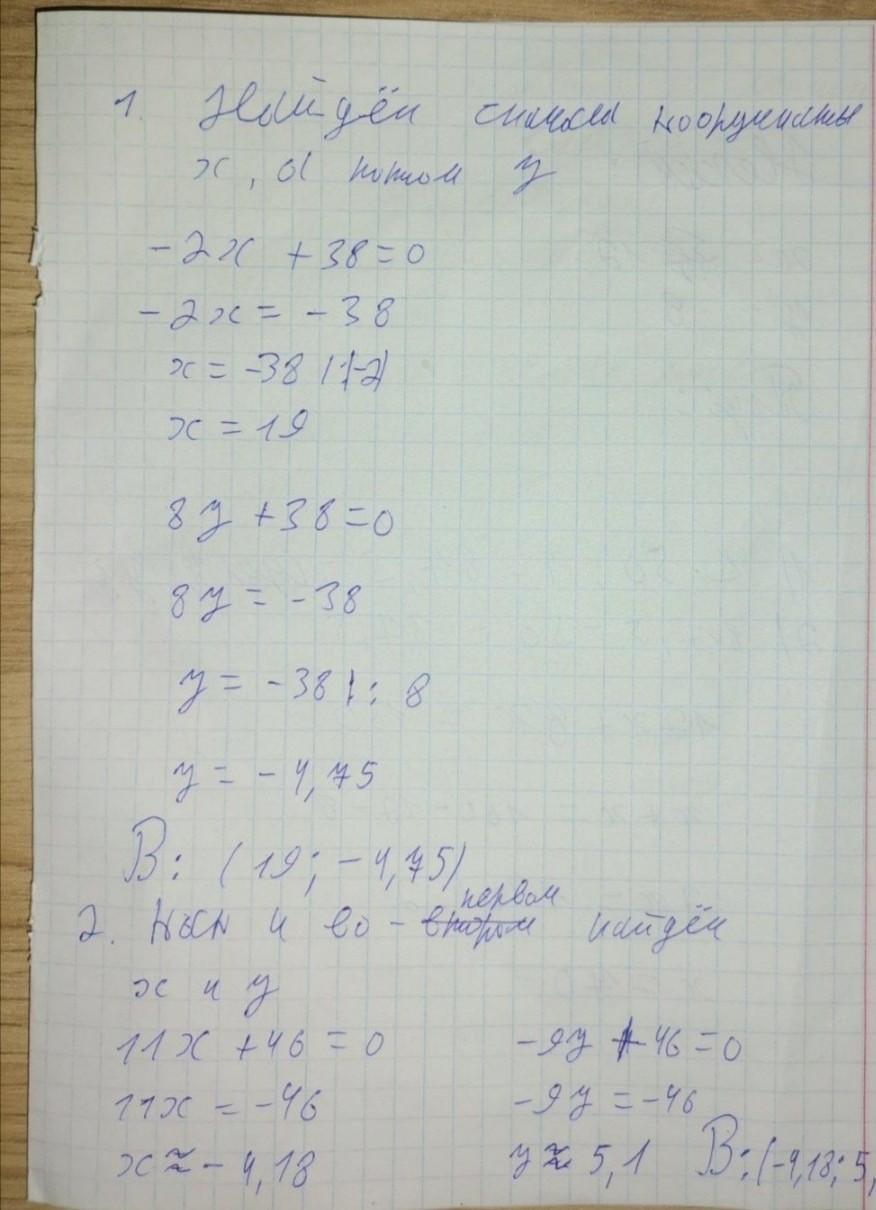 1. Найдём сначала координаты
x, а потом y
-2x + 38 = 0
-2x = -38
x = -38 : (-2)
x = 19
8y + 38 = 0
8y = -38
y = -38 : 8
y = -4,75
В: (19; -4,75)
2. Как и во - первом найдём
x и y
11x + 46 = 0
11x = -46
x ≈ -4,18
-9y + 46 = 0
-9y = -46
y ≈ 5,1
В: (-4,18; 5,